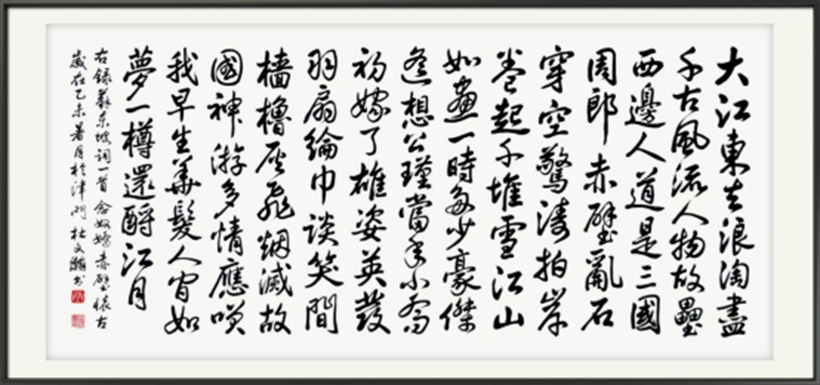 大江東去浪淘盡
千古風流人物故壘
西邊人道是三國
周郎赤壁亂石
穿空驚濤拍岸
卷起千堆雪江山
如畫一時多少豪傑
遙想公瑾當年小喬
初嫁了雄姿英發
羽扇綸巾談笑間
檣櫓灰飛烟滅故
國神游多情應笑
我早生華髮人間如
夢一樽還酹江月
右録蘇东坡詞一首念奴嬌赤壁懷古
歲在乙未暑月於津門杜文瀚书